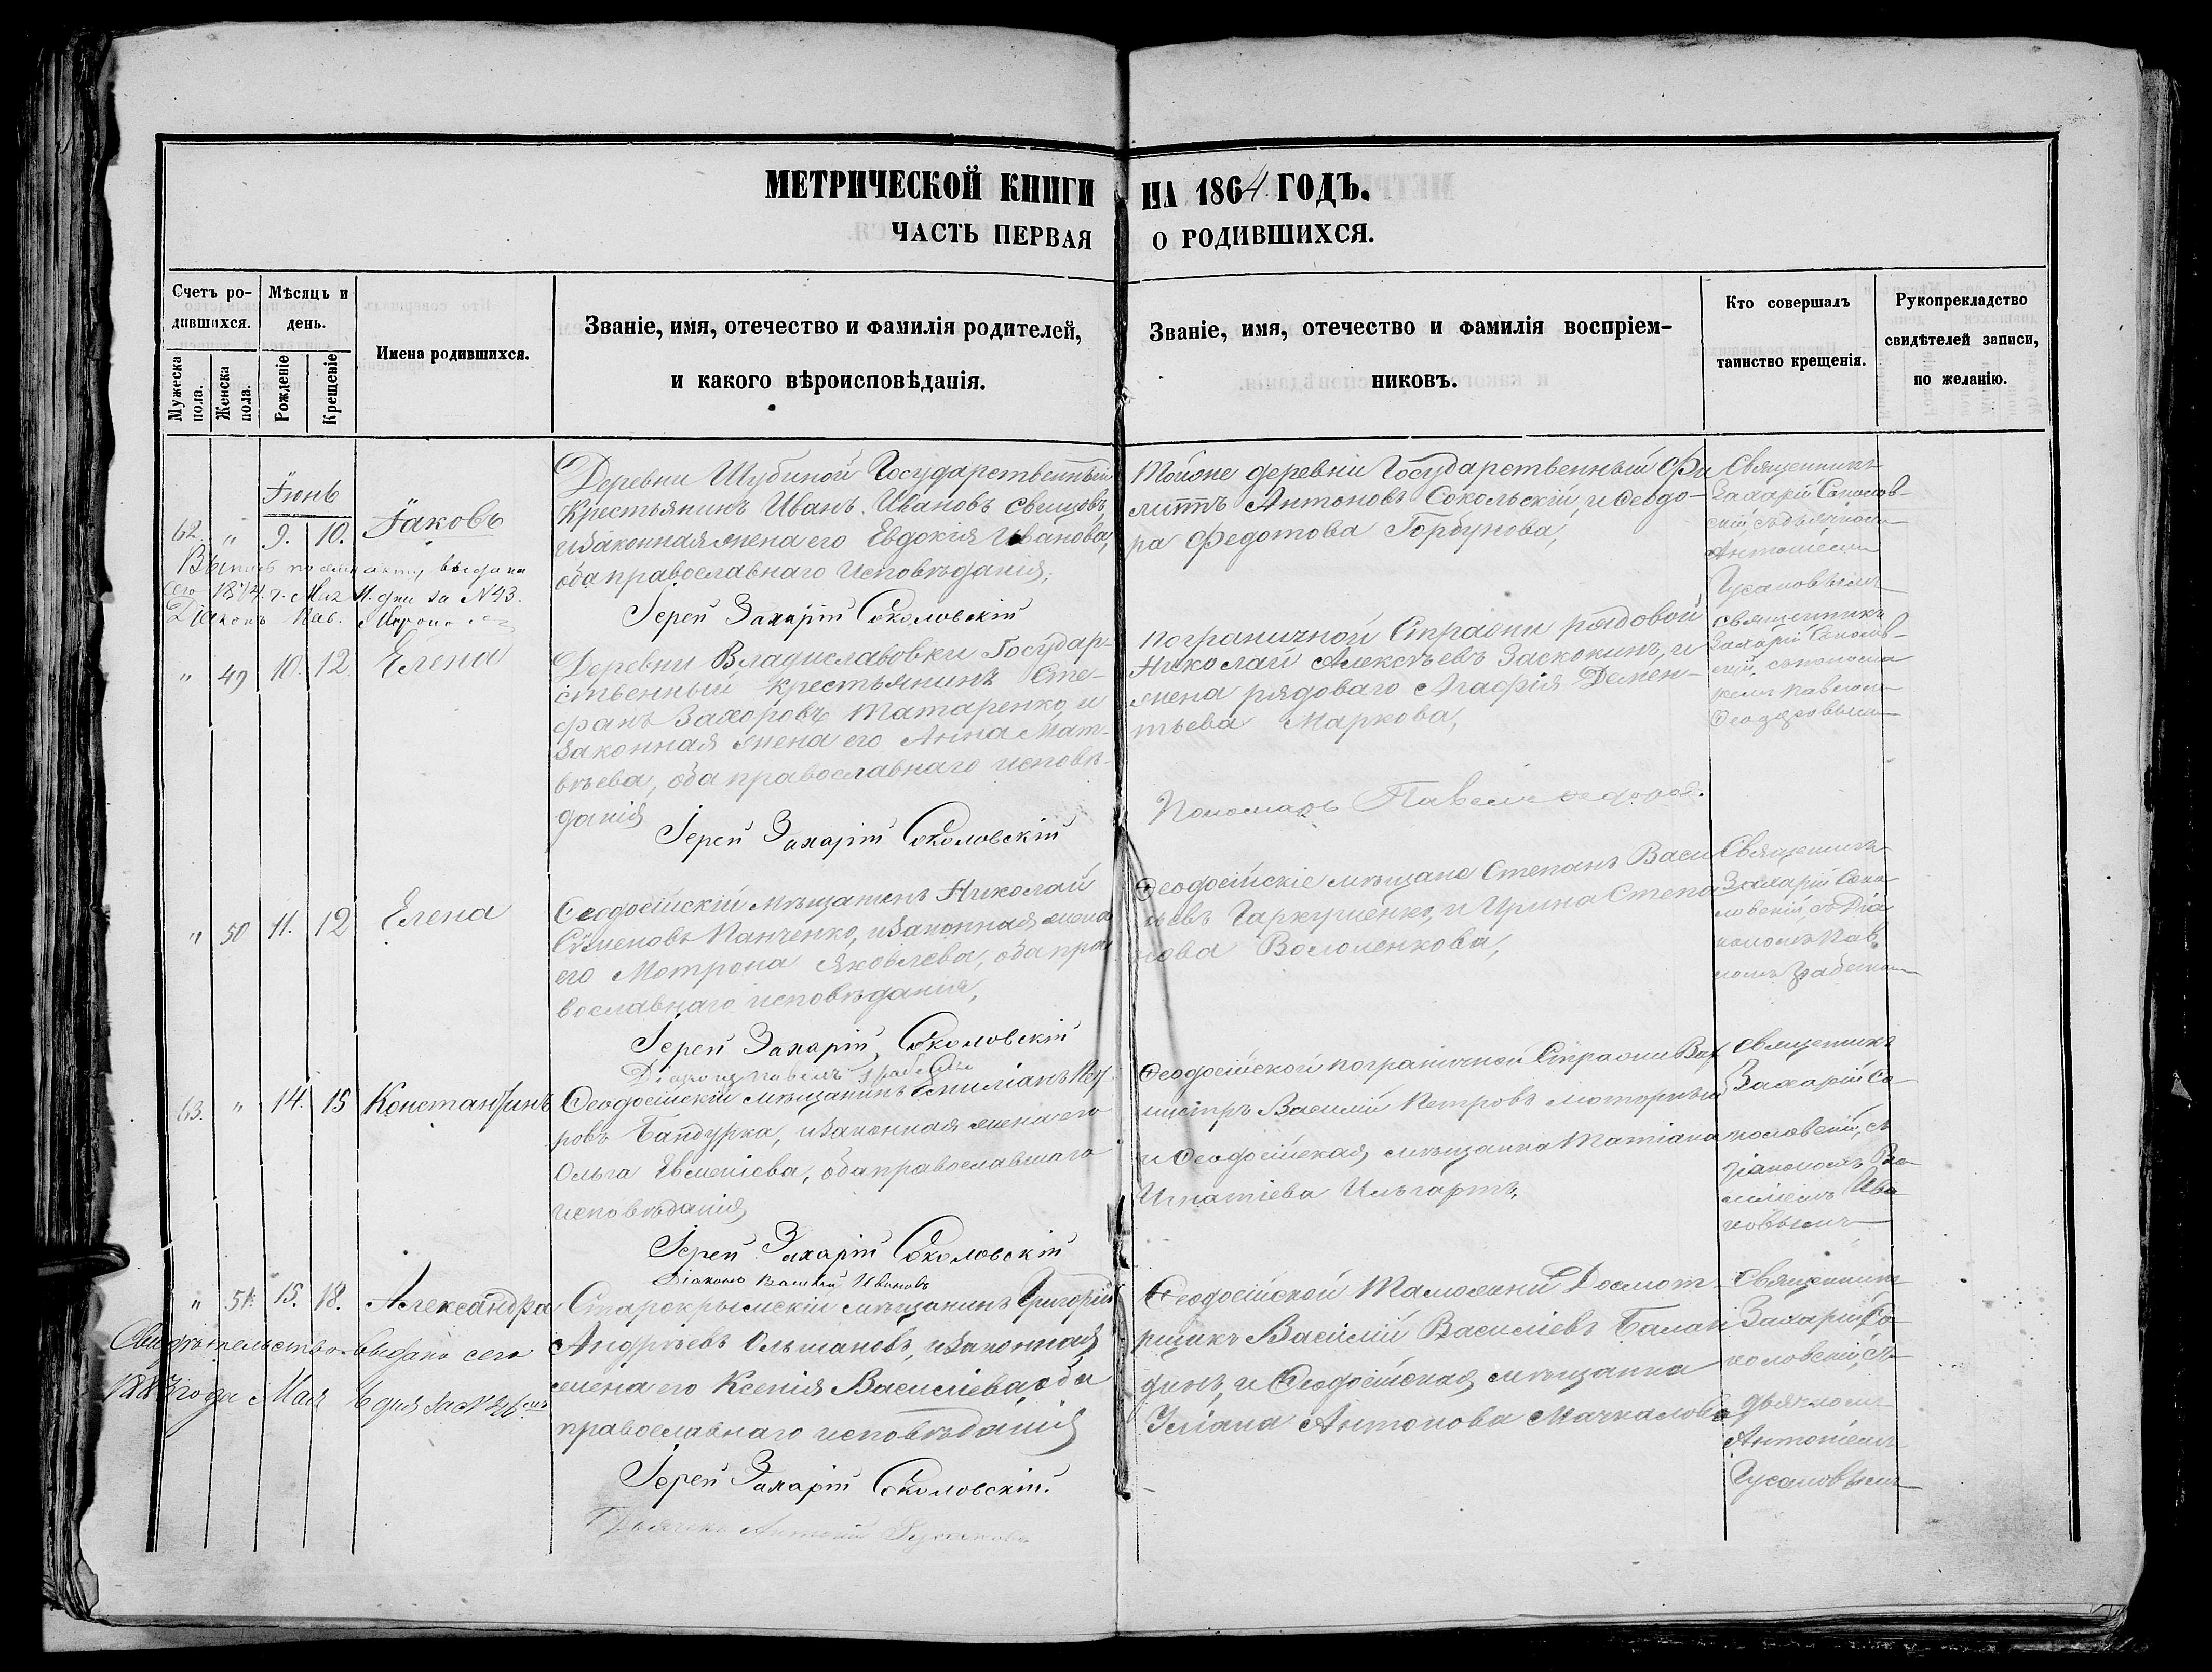 МЕТРИЧЕСКОЙ КНИГИ НА 1864. ГОДЪ.
ЧАСТЬ ПЕРВАЯ О РОДИВШИХСЯ.
Счетъ ро-
дившихся.
Мужеска пола.
Женска пола.
Мѣсяць и
день.
Рожденіе
Крещеніе
Имена родившихся.
Званіе, имя, отечество и фамилія родителей,
и какого вѣроисповѣданія.
Званіе, имя, отечество и фамилія воспріем-
никовъ.
Кто совершалъ
таинство крещенія.
Рукоприкладство
свидѣтелей записи,
по желанію.
Іюнь
62. " 9. 10. Іаковъ
выдана
сего 1874. г. Мая 11. дня за N 43.
Діаконъ Пав.
Деревни Шубиной Государственный
Крестьянинъ Иванъ Ивановъ
и законная жена его Евдокія Иванова,
оба православнаго исповѣданія,
Іерей Захарій Соколовскій
Тойже деревни Государственный Фи
липпъ Антоновъ Сокольскій, и Ѳеодо-
ра Федотова Горбунова,
Священникъ
Захарій Соколов-
скій, съ дьячкомъ
Антоніемъ
Гусаковымъ
" 49 10. 12. Елена
Деревни Владиславовки Государ-
ственный крестьянинъ Сте-
фанъ Захаровъ Татаренко, и
законная жена его Анна Мат-
вѣева, оба православнаго исповѣ-
данія
Іерей Захарій Соколовскій
Пограничной Стражи рядовой
Николай Алексѣевъ Заскокинъ, и
жена рядоваго Агафія Демен-
тьева Маркова,
Пономарь Павелъ
священникъ
Захарій Соколов-
скій, съ понома
ремъ Павломъ
" 50 11. 12 Елена
Ѳеодосійскій мѣщанинъ Николай
Сѣменовъ Панченко, и законная жена
его Мотрона Яковлева, оба пра
вославнаго исповѣданія,
Іерей Захарій Соколовскій
Діаконъ Павелъ
Ѳеодосійскіе мѣщане Степанъ Васи
льевъ и Ирина Степа
нова Волошенкова,
Священникъ
Захарій Соко
ловскій, съ Діа
кономъ Пав
ломъ
63. " 14. 15 Константинъ
Ѳеодосійскій мѣщанинъ Емиліанъ Пет
ровъ Бандурка, и законная жена его
Ольга Евменіева, оба православнаго
исповѣданія
Іерей Захарій Соколовскій
Діаконъ Василій Ивановъ
Ѳеодосійской пограничной Стражи Вах
мистръ Василій Петровъ
и Ѳеодосійская мѣщанка Татіана
Игнатіева
Священникъ
Захарій Со-
коловскій, съ
діакономъ Ва
силіемъ Ива
новымъ
" 51. 15. 18. Александра
Свидѣтельство выдано сего
года Мая дня за N
Старокрымскій мѣщанинъ Григорій
Андрѣевъ Ольшановъ, и законная
жена его Ксенія Василіева, оба
православнаго исповѣданія
Іерей Захарій Соколовскій.
Дьячекъ Антоній Гусаковъ
Ѳеодосійской Таможни Досмот
рщикъ Василій Василіевъ Балан
динъ, и Ѳеодосійская мѣщанка
Уліана Антонова
Священникъ
Захарій Со-
коловскій, съ
дьячкомъ
Антоніемъ
Гусаковымъ